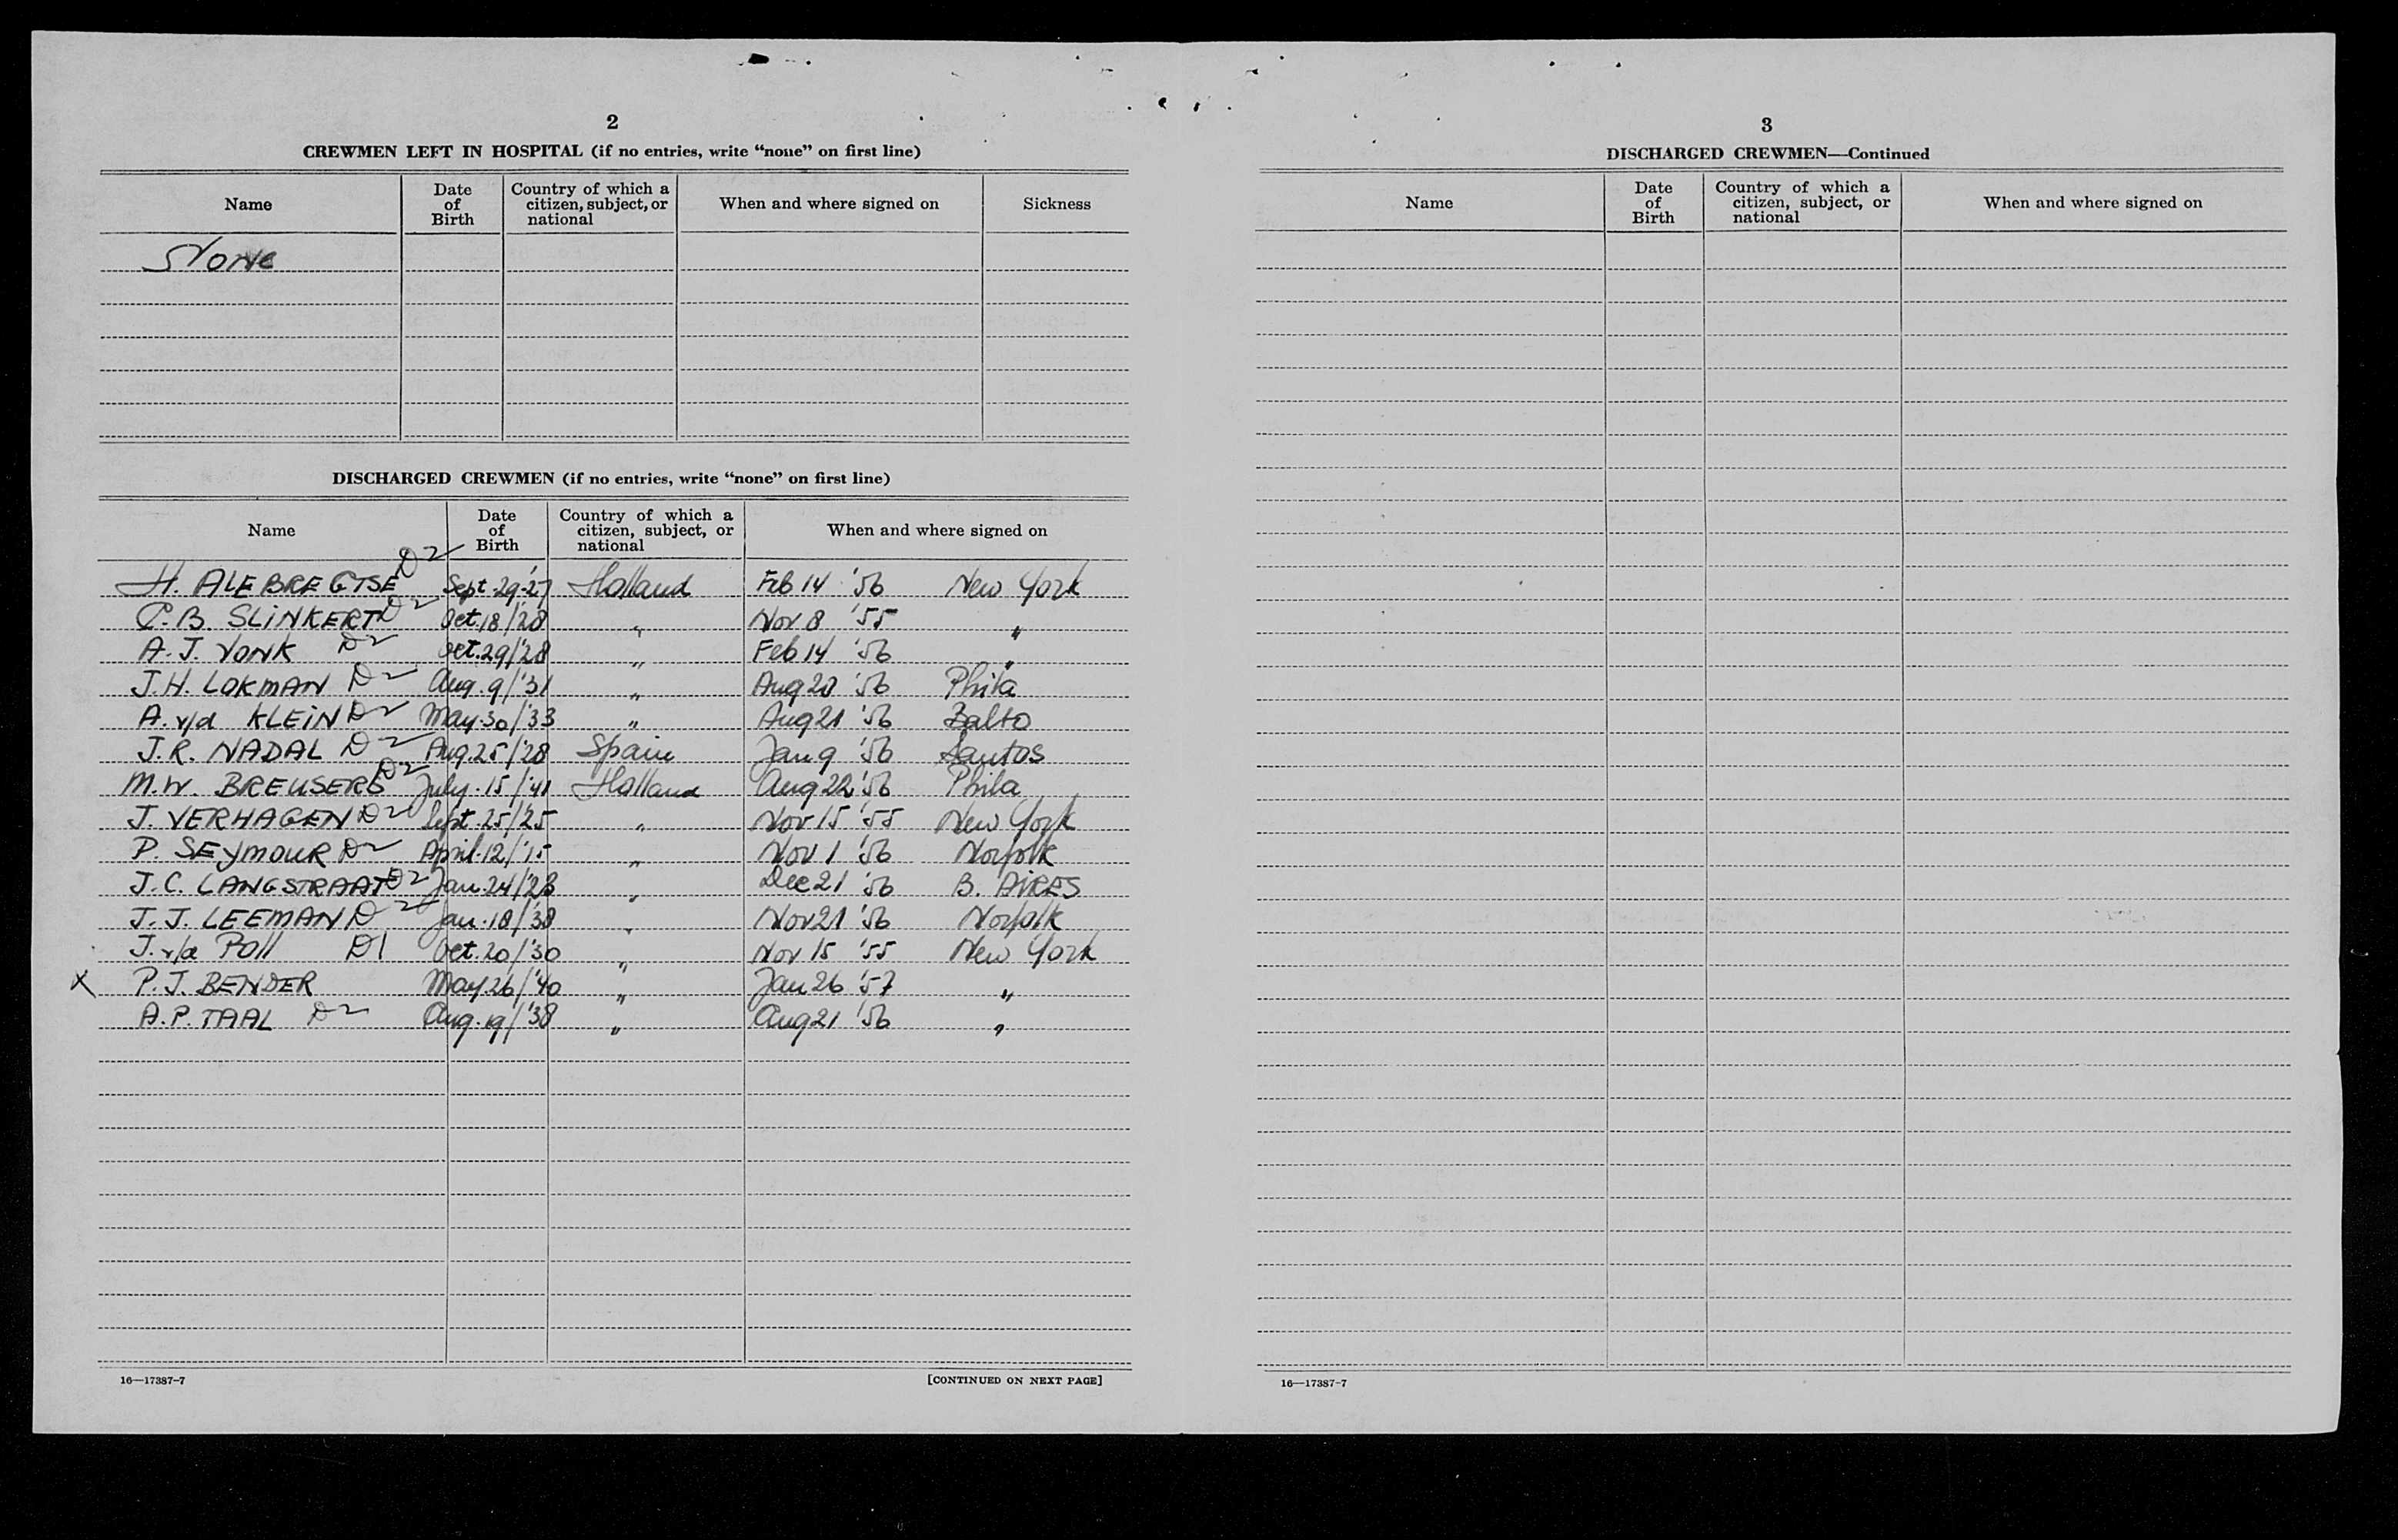 2
CREWMEN LEFT IN HOSPITAL (if no entries, write “none” on first line)
Name
Date of Birth
Country of which a citizen, subject, or national
When and where signed on
Sickness
None
DISCHARGED CREWMEN (if no entries, write “none” on first line)
Name
Date of Birth
Country of which a citizen, subject, or national
When and where signed on
H. ALEBREGTSE D2 Sept 29-'27 Holland Feb 14 '56 New York
C.B. SLINKERT D2 Oct.18/'28 " Nov 8 '55 "
A.J. VONK D2 Oct.29/'28 " Feb 14 '56 "
J.H. LOKMAN D2 Aug.9/'31 " Aug 20 '56 Phila
A. v/d KLEIN D2 May.30/'33 " Aug 21 '56 Balto
J.R. NADAL D2 Aug.25/'28 Spain Jan 9 '56 Santos
M.W. BREUSERS D2 July.15/'41 Holland Aug 22 '56 Phila
J. VERHAGEN D2 Sept.25/'25 " Nov 15 '55 New York
P. SEYMOUR D2 April.12/'15 " Nov 1 '56 Norfolk
J.C. LANGSTRAAT D2 Jan.24/'23 " Dec 21 '56 B. AIRES
J.J. LEEMAN D2 Jan.18/'38 " Nov 21 '56 Norfolk
J. v/d Poll D1 Oct.20/'30 " Nov 15 '55 New York
X P.J. BENDER May 26/'40 " Jan 26 '57 "
A.P. TAAL D2 Aug.19/'38 " Aug 21 '56 "
16—17387-7
[CONTINUED ON NEXT PAGE]
3
DISCHARGED CREWMEN—Continued
Name
Date of Birth
Country of which a citizen, subject, or national
When and where signed on
16—17387-7